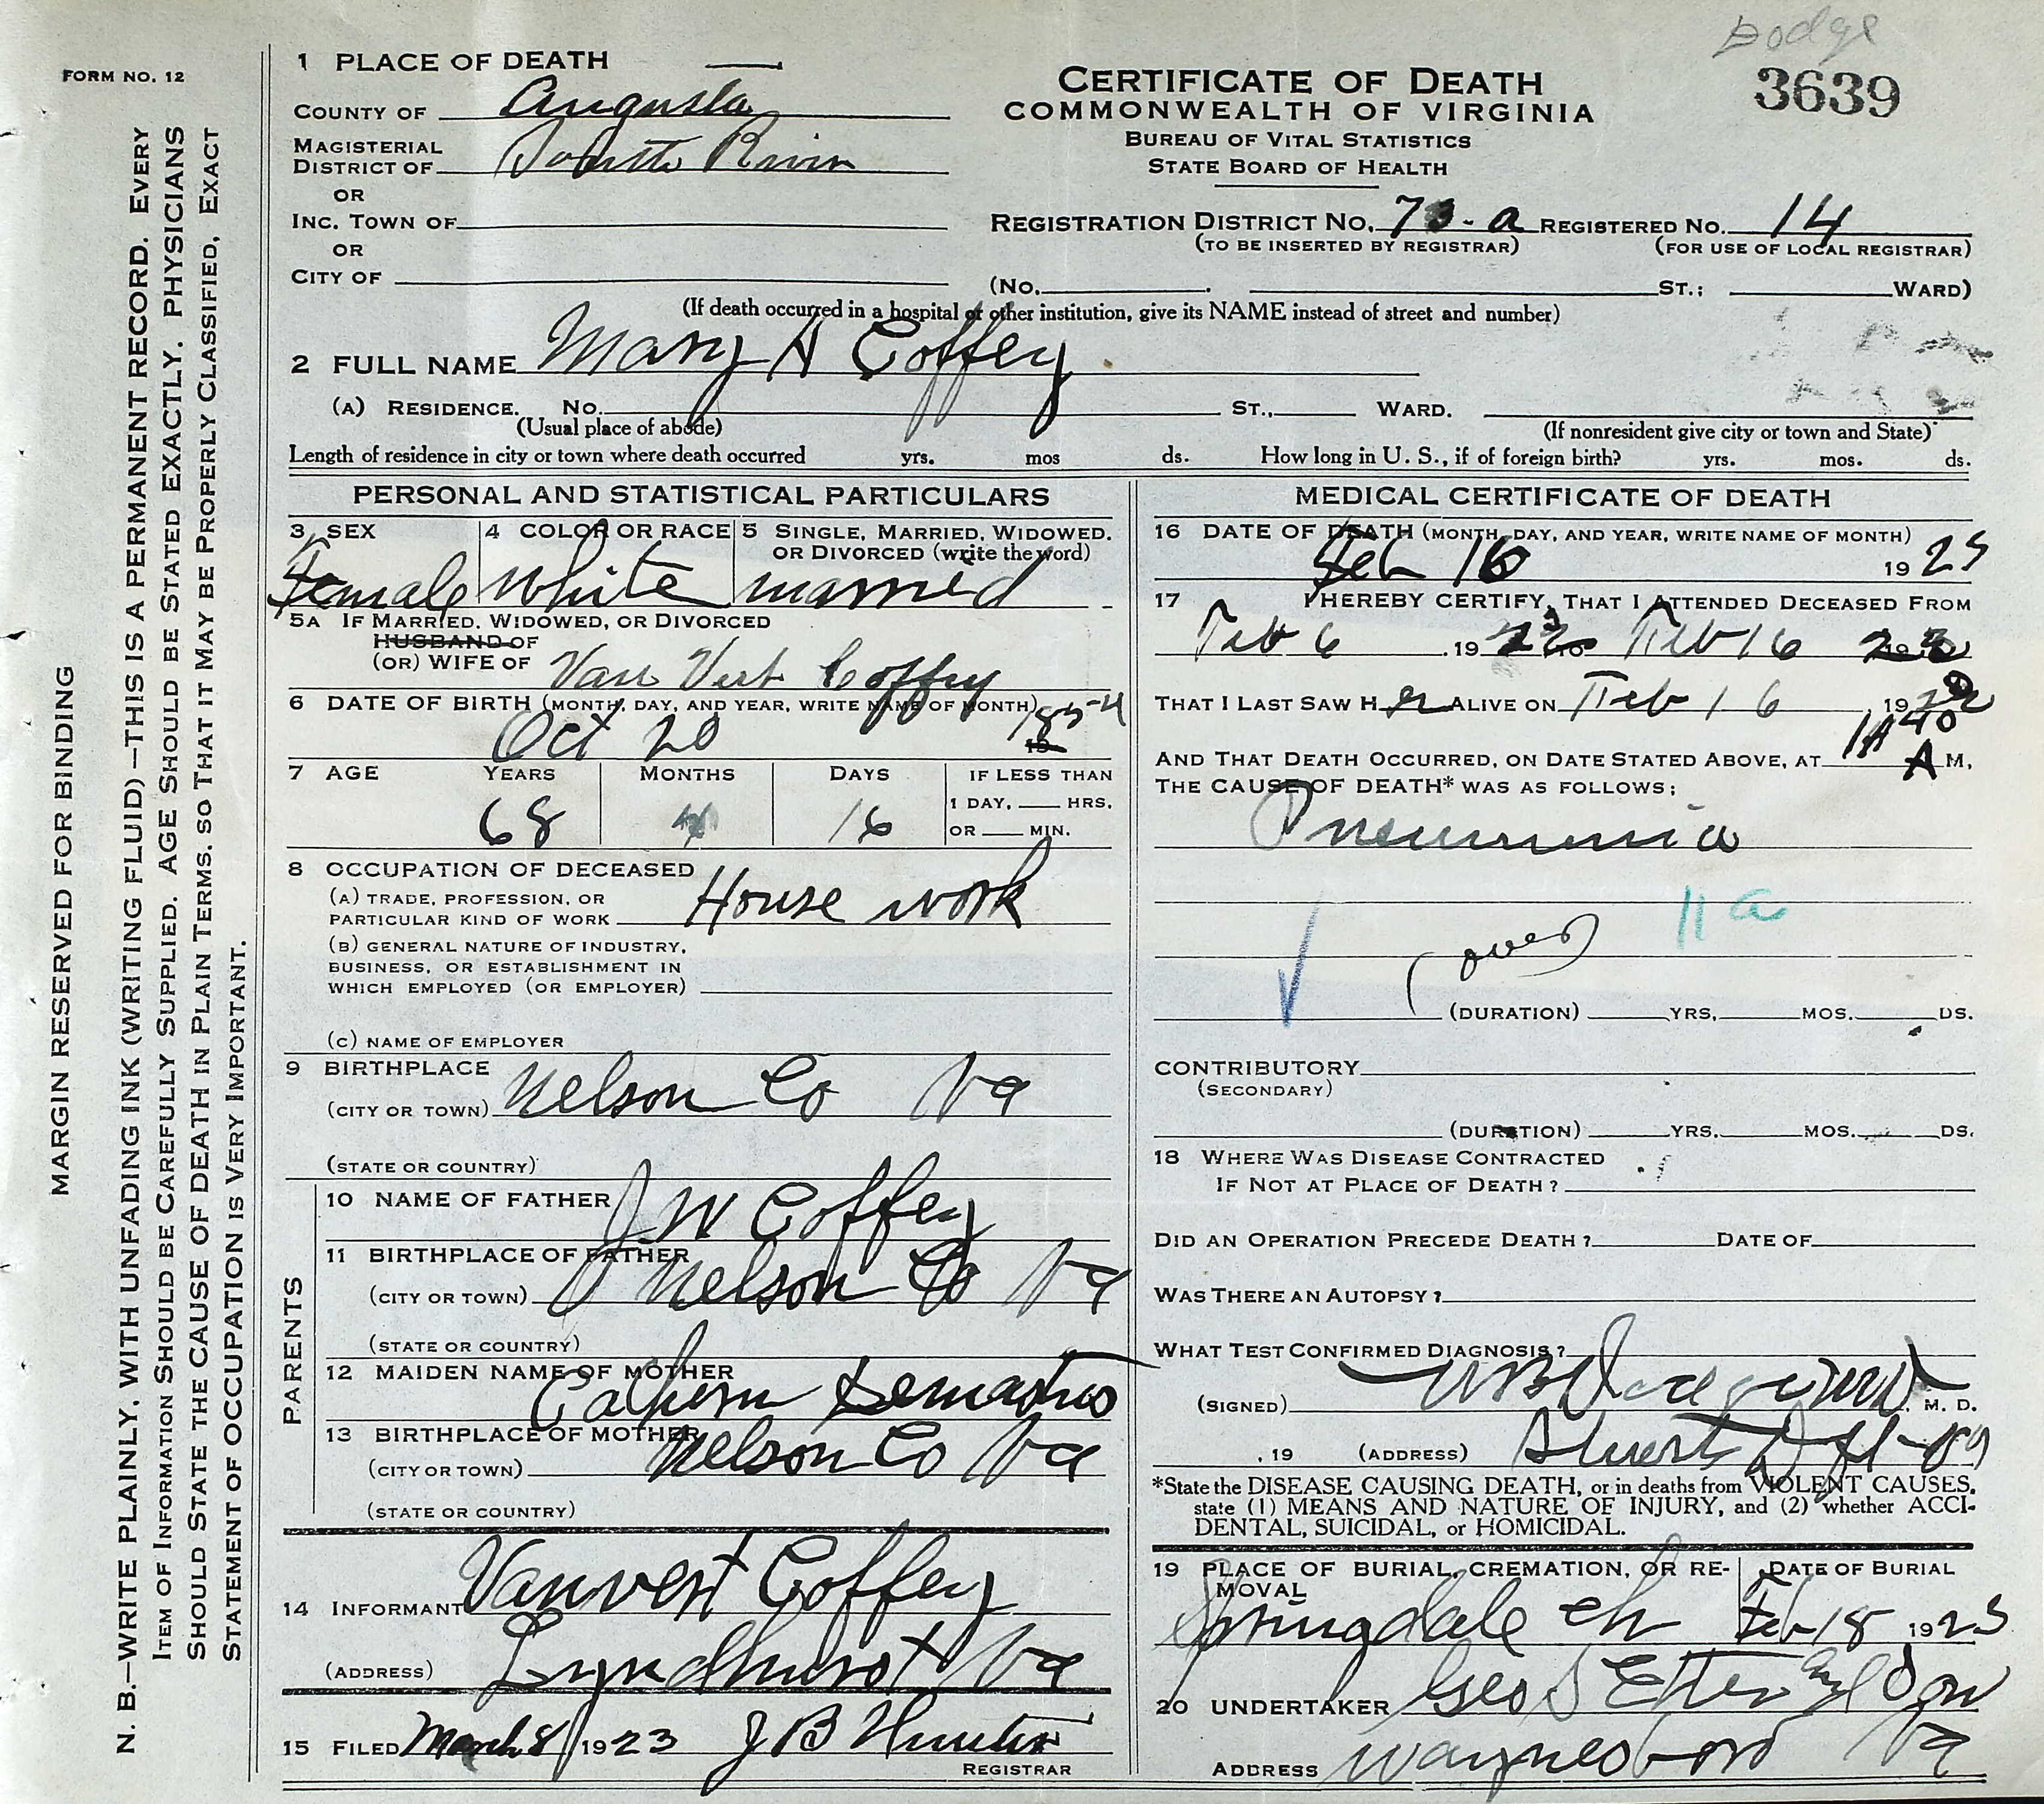 Dodge
3639
FORM NO. 12
MARGIN RESERVED FOR BINDING
N. B.—WRITE PLAINLY, WITH UNFADING INK (WRITING FLUID)—THIS IS A PERMANENT RECORD. EVERY
ITEM OF INFORMATION SHOULD BE CAREFULLY SUPPLIED. AGE SHOULD BE STATED EXACTLY. PHYSICIANS
SHOULD STATE THE CAUSE OF DEATH IN PLAIN TERMS, SO THAT IT MAY BE PROPERLY CLASSIFIED, EXACT
STATEMENT OF OCCUPATION IS VERY IMPORTANT.
1 PLACE OF DEATH
COUNTY OF Augusta
MAGISTERIAL
DISTRICT OF South River
OR
INC. TOWN OF
OR
CITY OF
CERTIFICATE OF DEATH
COMMONWEALTH OF VIRGINIA
BUREAU OF VITAL STATISTICS
STATE BOARD OF HEALTH
REGISTRATION DISTRICT NO. 73-a REGISTERED NO. 14
(TO BE INSERTED BY REGISTRAR) (FOR USE OF LOCAL REGISTRAR)
(NO. ST.; WARD)
(If death occurred in a hospital or other institution, give its NAME instead of street and number)
2 FULL NAME Mary A Coffey
(A) RESIDENCE. NO. ST., WARD.
(Usual place of abode) (If nonresident give city or town and State)
Length of residence in city or town where death occurred yrs. mos ds. How long in U. S., if of foreign birth? yrs. mos. ds.
PERSONAL AND STATISTICAL PARTICULARS
3 SEX 4 COLOR OR RACE 5 SINGLE, MARRIED, WIDOWED,
OR DIVORCED (write the word)
Female White married
5A IF MARRIED, WIDOWED, OR DIVORCED
HUSBAND OF
(OR) WIFE OF Van Vert Coffey
6 DATE OF BIRTH (MONTH, DAY, AND YEAR, WRITE NAME OF MONTH)
Oct 20 1854
7 AGE YEARS MONTHS DAYS IF LESS THAN
1 DAY, HRS.
OR MIN.
68 16
8 OCCUPATION OF DECEASED
(A) TRADE, PROFESSION, OR
PARTICULAR KIND OF WORK House work
(B) GENERAL NATURE OF INDUSTRY,
BUSINESS, OR ESTABLISHMENT IN
WHICH EMPLOYED (OR EMPLOYER)
(C) NAME OF EMPLOYER
9 BIRTHPLACE
(CITY OR TOWN) Nelson Co Va
(STATE OR COUNTRY)
PARENTS
10 NAME OF FATHER J. W Coffey
11 BIRTHPLACE OF FATHER
(CITY OR TOWN) Nelson Co Va
(STATE OR COUNTRY)
12 MAIDEN NAME OF MOTHER
13 BIRTHPLACE OF MOTHER
(CITY OR TOWN) Nelson Co Va
(STATE OR COUNTRY)
14 INFORMANT Vanvert Coffey
(ADDRESS) Lyndhurst Va
15 FILED March 8 1923 J B Hunter
REGISTRAR
MEDICAL CERTIFICATE OF DEATH
16 DATE OF DEATH (MONTH, DAY, AND YEAR, WRITE NAME OF MONTH)
Feb 16 1923
17 I HEREBY CERTIFY, THAT I ATTENDED DECEASED FROM
Feb 6, 1923 TO Feb 16 1923
THAT I LAST SAW HER ALIVE ON Feb 16, 1923
AND THAT DEATH OCCURRED, ON DATE STATED ABOVE, AT A M.
THE CAUSE OF DEATH* WAS AS FOLLOWS:
Pneumonia
11a
(over)
(DURATION) YRS. MOS. DS.
CONTRIBUTORY
(SECONDARY)
(DURATION) YRS. MOS. DS.
18 WHERE WAS DISEASE CONTRACTED
IF NOT AT PLACE OF DEATH?
DID AN OPERATION PRECEDE DEATH? DATE OF
WAS THERE AN AUTOPSY?
WHAT TEST CONFIRMED DIAGNOSIS?
(SIGNED) M. D.
, 19 (ADDRESS) Stuarts Dft Va
*State the DISEASE CAUSING DEATH, or in deaths from VIOLENT CAUSES,
state (1) MEANS AND NATURE OF INJURY, and (2) whether ACCI-
DENTAL, SUICIDAL, or HOMICIDAL.
19 PLACE OF BURIAL, CREMATION, OR RE- DATE OF BURIAL
MOVAL
Springdale ch Feb 18 1923
20 UNDERTAKER Geo S Etter & Son
ADDRESS Waynesboro Va